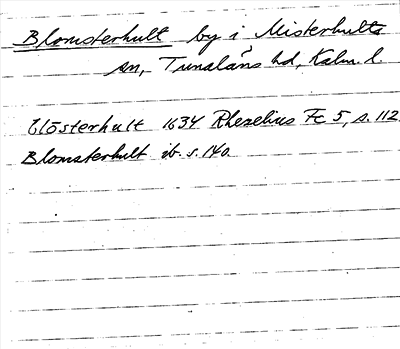 Blomsterhult by i Misterhults
sn, Tunaläns hd, Kalm. l.
Clösterhult 1634 Rhezelius Fc 5, s. 112
Blomsterhult ib. s. 140.